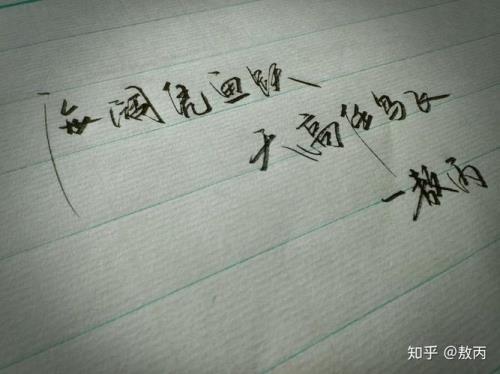 海阔凭鱼跃
天高任鸟飞
—敖丙
知乎 @敖丙